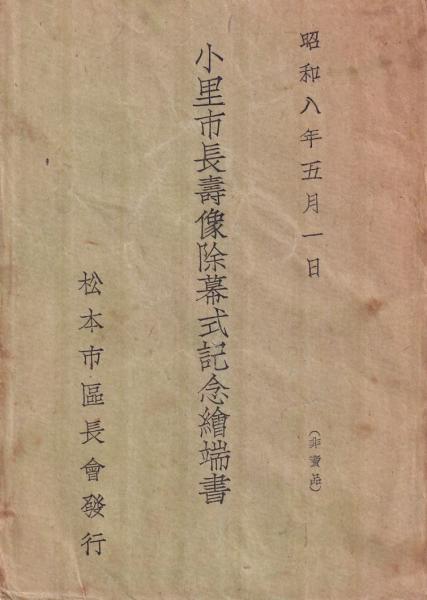 昭和八年五月一日
(非賣品)
小里市長壽像除幕式記念繪端書
松本市區長會發行